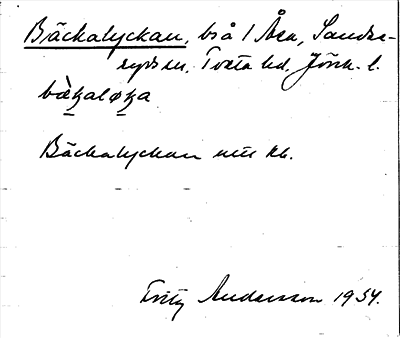 Bäckalyckan, bså 1 Åsa, Sandse-
ryds sn, Tveta hd, Jönk. l.
bæ̀kaløka
Bäckalyckan utt kb.
Fritz Andersson 1934.